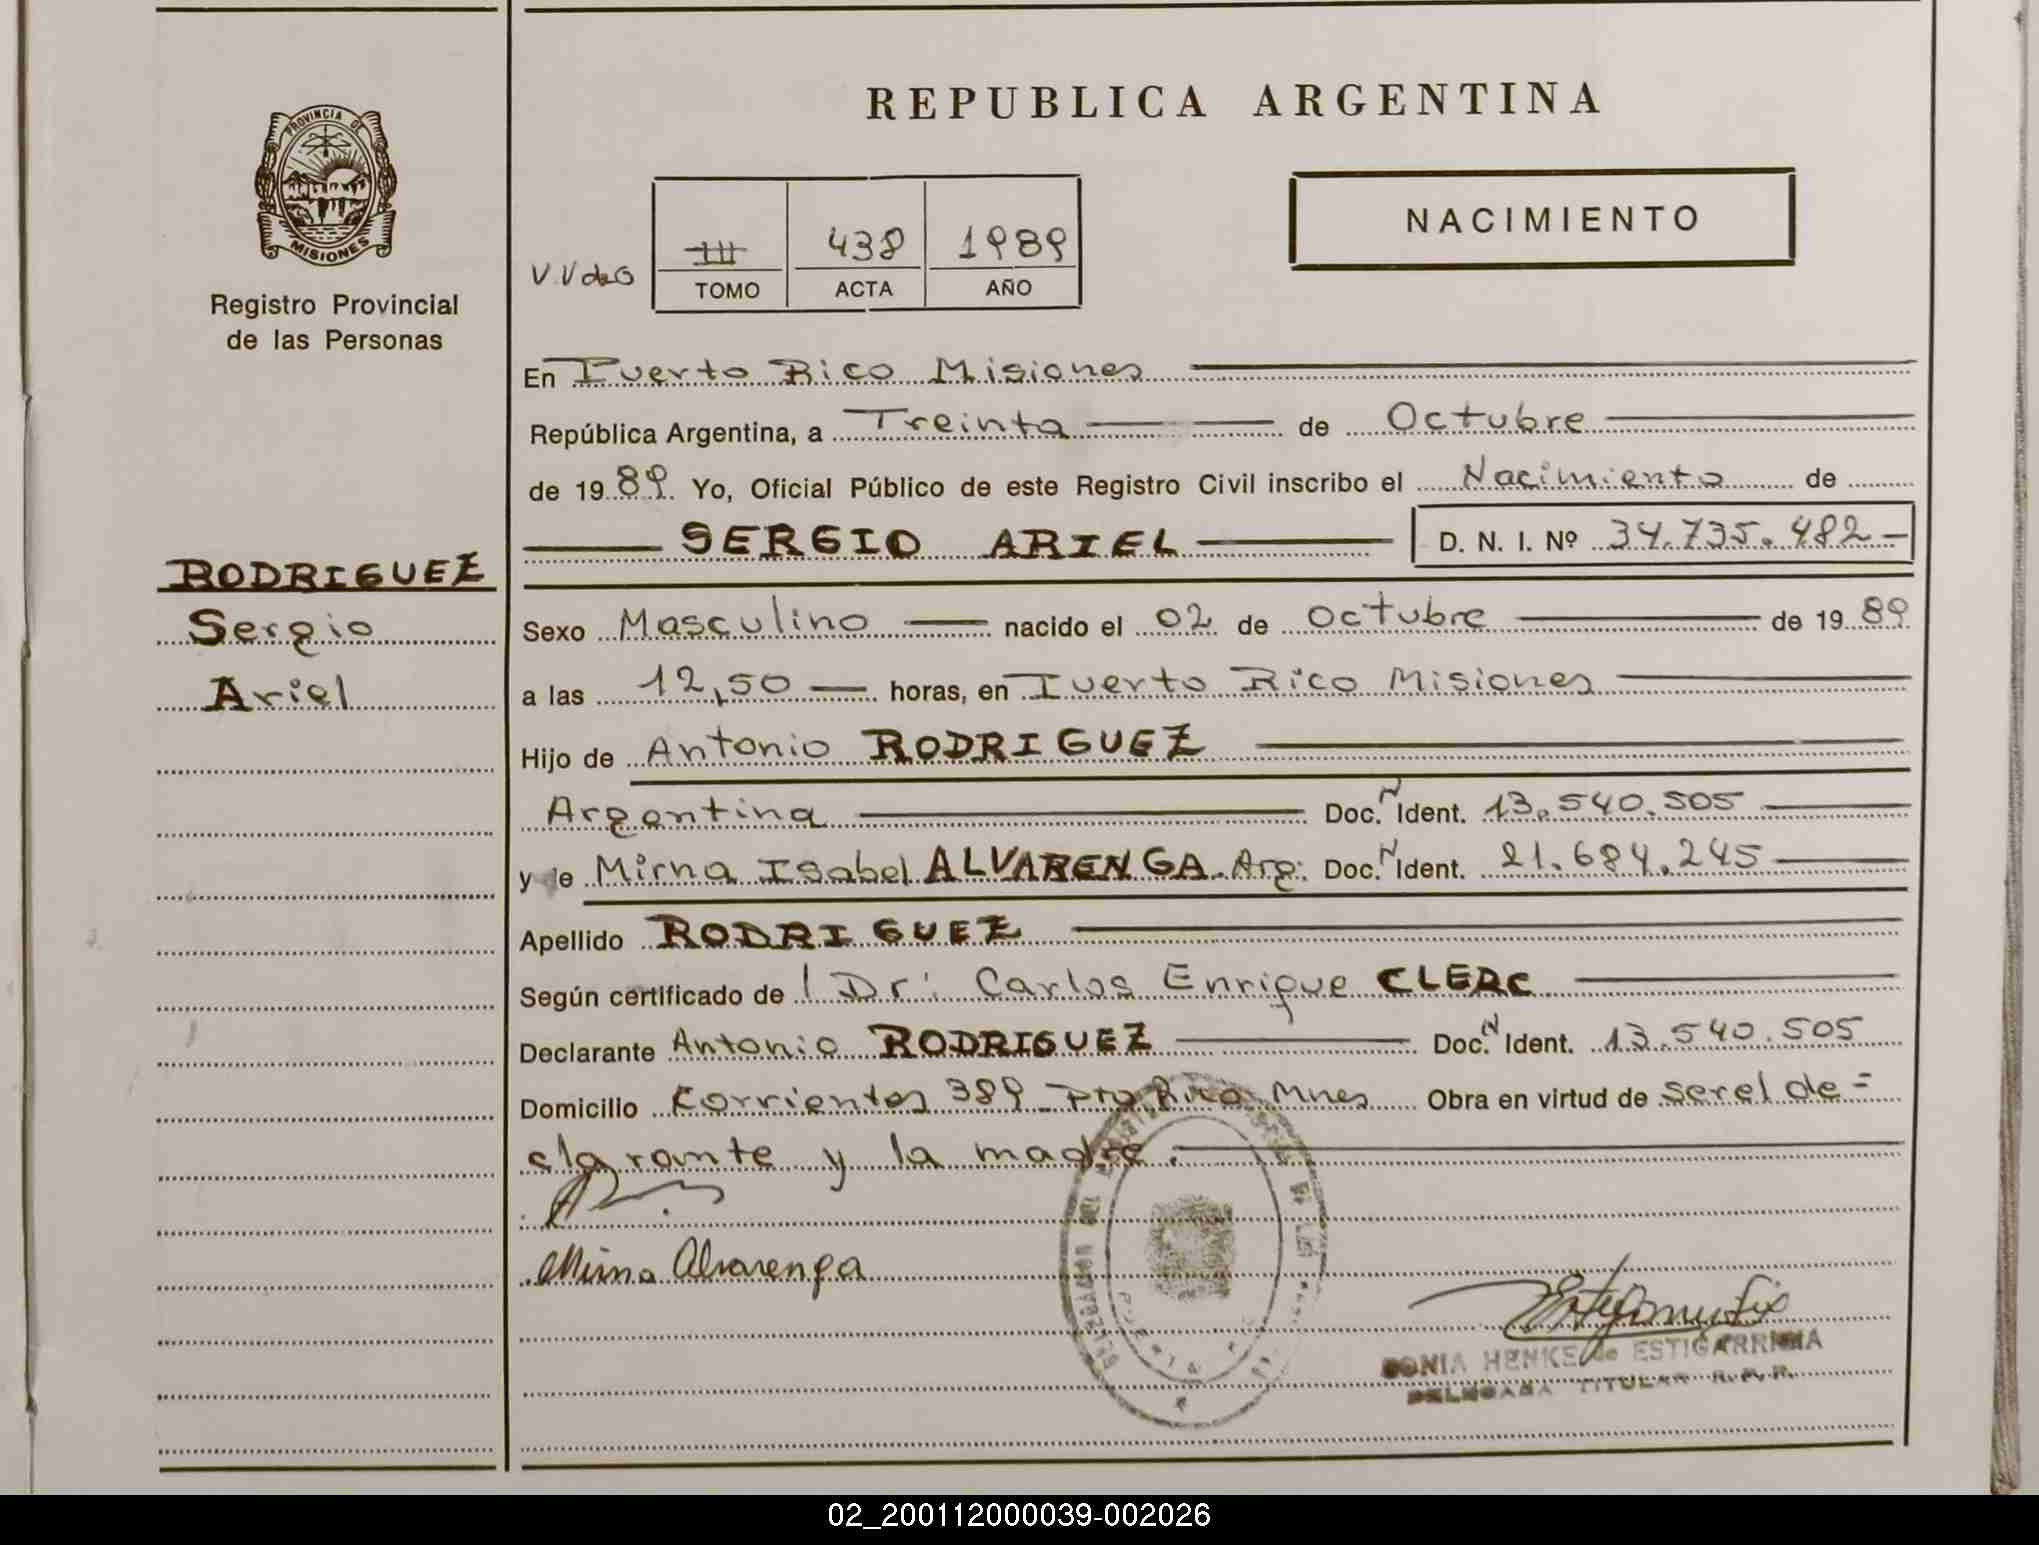 REPUBLICA ARGENTINA
PROVINCIA DE
MISIONES
Registro Provincial
de las Personas
NACIMIENTO
V.V de G
III 438 1989
TOMO ACTA AÑO
En Puerto Rico Misiones
República Argentina, a Treinta de Octubre
de 1989. Yo, Oficial Público de este Registro Civil inscribo el Nacimiento de
SERGIO ARIEL D. N. I. Nº 34.735.482-
RODRIGUEZ
Sergio
Ariel
Sexo Masculino nacido el 02 de Octubre de 1989
a las 12,50 horas, en Puerto Rico Misiones
Hijo de Antonio RODRIGUEZ
Argentina Doc. N Ident. 13.540.505
y de Mirna Isabel ALVARENGA. Arg: Doc. N Ident. 21.684.245
Apellido RODRIGUEZ
Según certificado de l Dr: Carlos Enrique CLERC
Declarante Antonio RODRIGUEZ Doc. N Ident. 13.540.505
Domicilio Corrientes 389 - Pto Rico Mnes Obra en virtud de ser el de=
clarante y la madre.
Mirna Alvarenga
SONIA HENKE de ESTIGARRIBIA
DELEGADA TITULAR R.P.P.
02_200112000039-002026